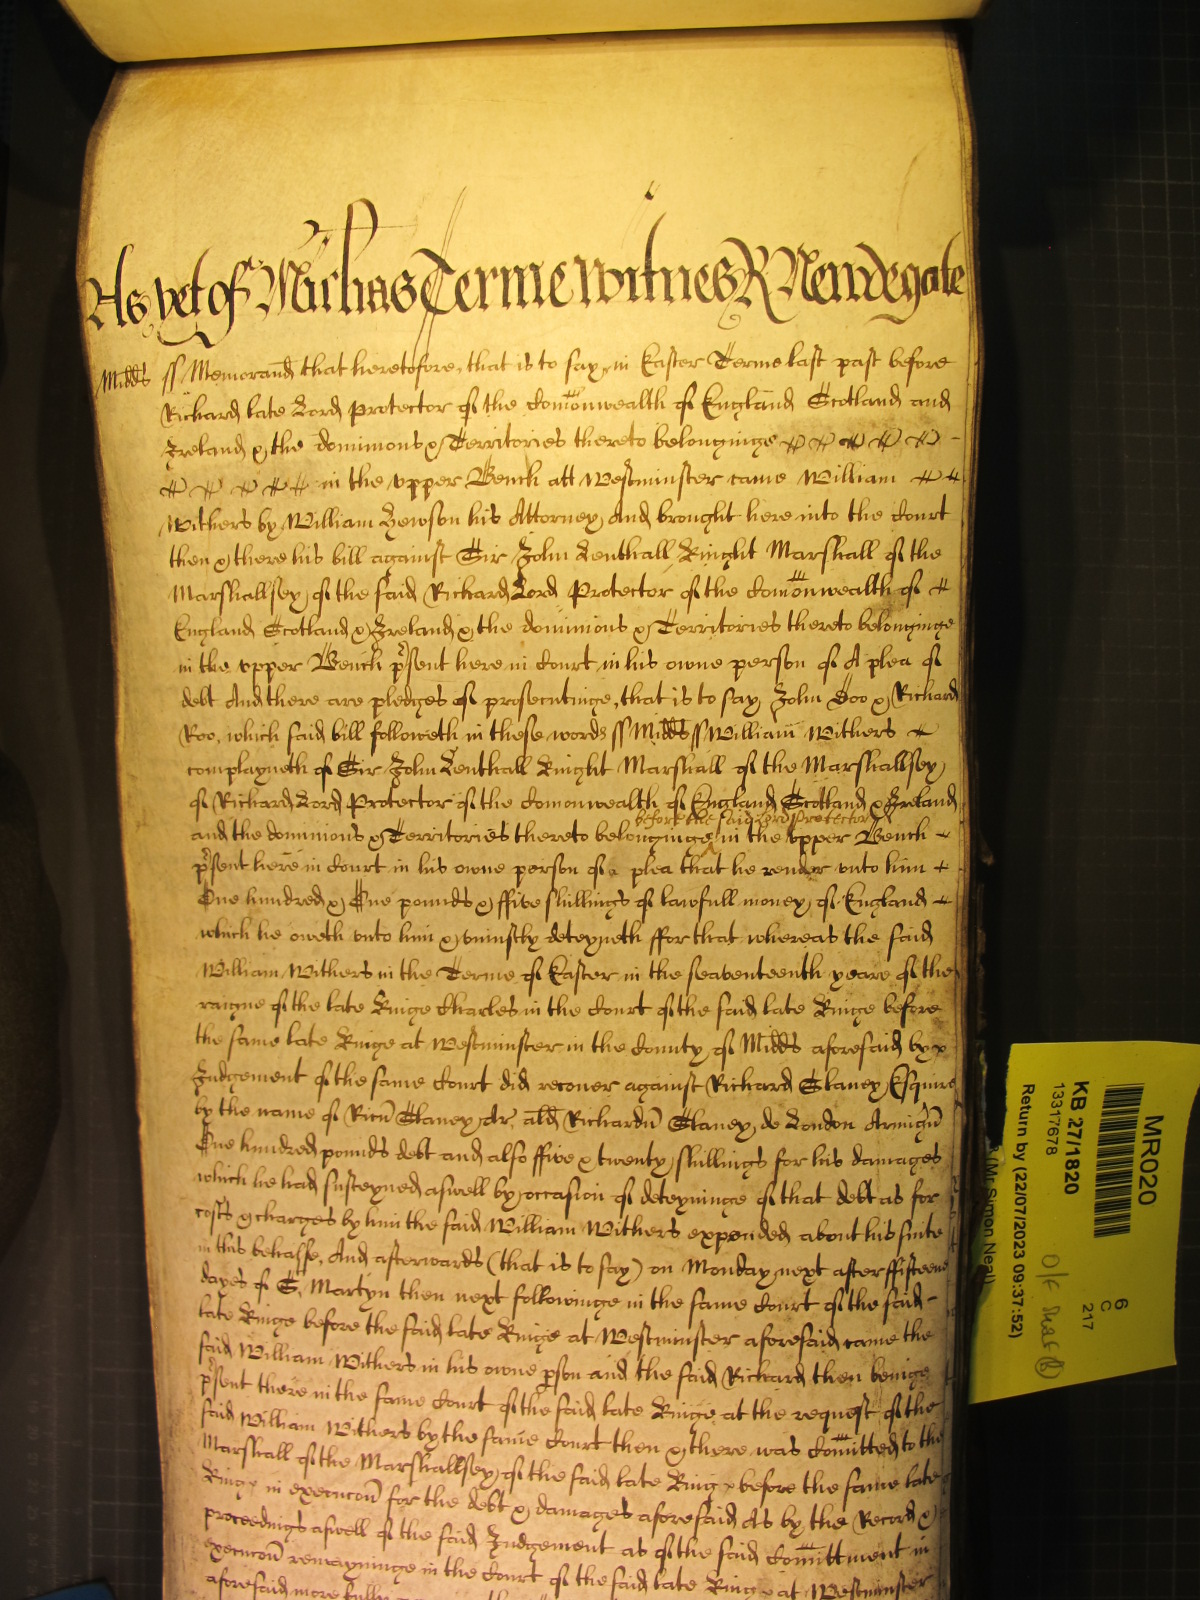 As yet of Michas Terme witnes R Newdegate
Midds ss Memorand that heretofore, that is to say, in Easter Terme last past before
Richard late Lord Protector of the Comonwealth of England Scotland and
Ireland & the dominions & Territories thereto belonginge
in the upper Bench att Westminster came William
Withers by William Hewson his Attorney And brought here into the Court
then & there his bill against Sir John Lenthall Knight Marshall of the
Marshallsey of the said Richard Lord Protector of the Comonwealth of
England Scotland & Ireland & the dominions & Territories thereto belonginge
in the upper Bench psent here in Court in his owne person of A plea of
debt And there are pledges of prosecutinge, that is to say John Doo & Richard
Roo, which said bill followeth in these words ss Midds ss William Withers
complayneth of Sir John Lenthall Knight Marshall of the Marshallsey
of Richard Lord Protector of the Comonwealth of England Scotland & Ireland
before the said Lord Protector
and the dominions & Territories thereto belonginge in the upper Bench
psent here in Court in his owne person of a plea that he render unto him
One hundred & One pounds & ffive shillings of lawfull money of England
which he oweth unto him & uniustly deteyneth ffor that whereas the said
William Withers in the Terme of Easter in the seaventeenth yeare of the
raigne of the late Kinge Charles in the Court of the said late Kinge before
the same late Kinge at Westminster in the County of Midds aforesaid by
Judgement of the same Court did recover against Richard Slaney Esquire
by the name of Ricu Slaney Ar, als Richardu Slaney de London Armigu
One hundred pounds debt and also ffive & twenty shillings for his damages
which he had susteyned aswell by occasion of deteyninge of that debt as for
costs & charges by him the said William Withers expended about his suite
in this behalfe, And afterwards (that is to say) on Monday next after ffifteene
dayes of S. Martyn then next followinge in the same Court of the said
late Kinge before the said late Kinge at Westminster aforesaid came the
said William Withers in his owne pson and the said Richard then beinge
psent there in the same Court of the said late Kinge at the request of the
said William Withers by the same Court then & there was Comitted to the
Marshall of the Marshallsey of the said late King before the same late
King in execucon for the debt & damages aforesaid As by the Record &
proceedings aswell of the said Judgement as of the said Comittment in
execucon remayninge in the Court of the said late King at Westminster
aforesaid more fully
MR0020
6
C
217
KB 27/1820
13317678
Return by (22/07/2023 09:37:52)
(Mr Simon Neal)
O/S